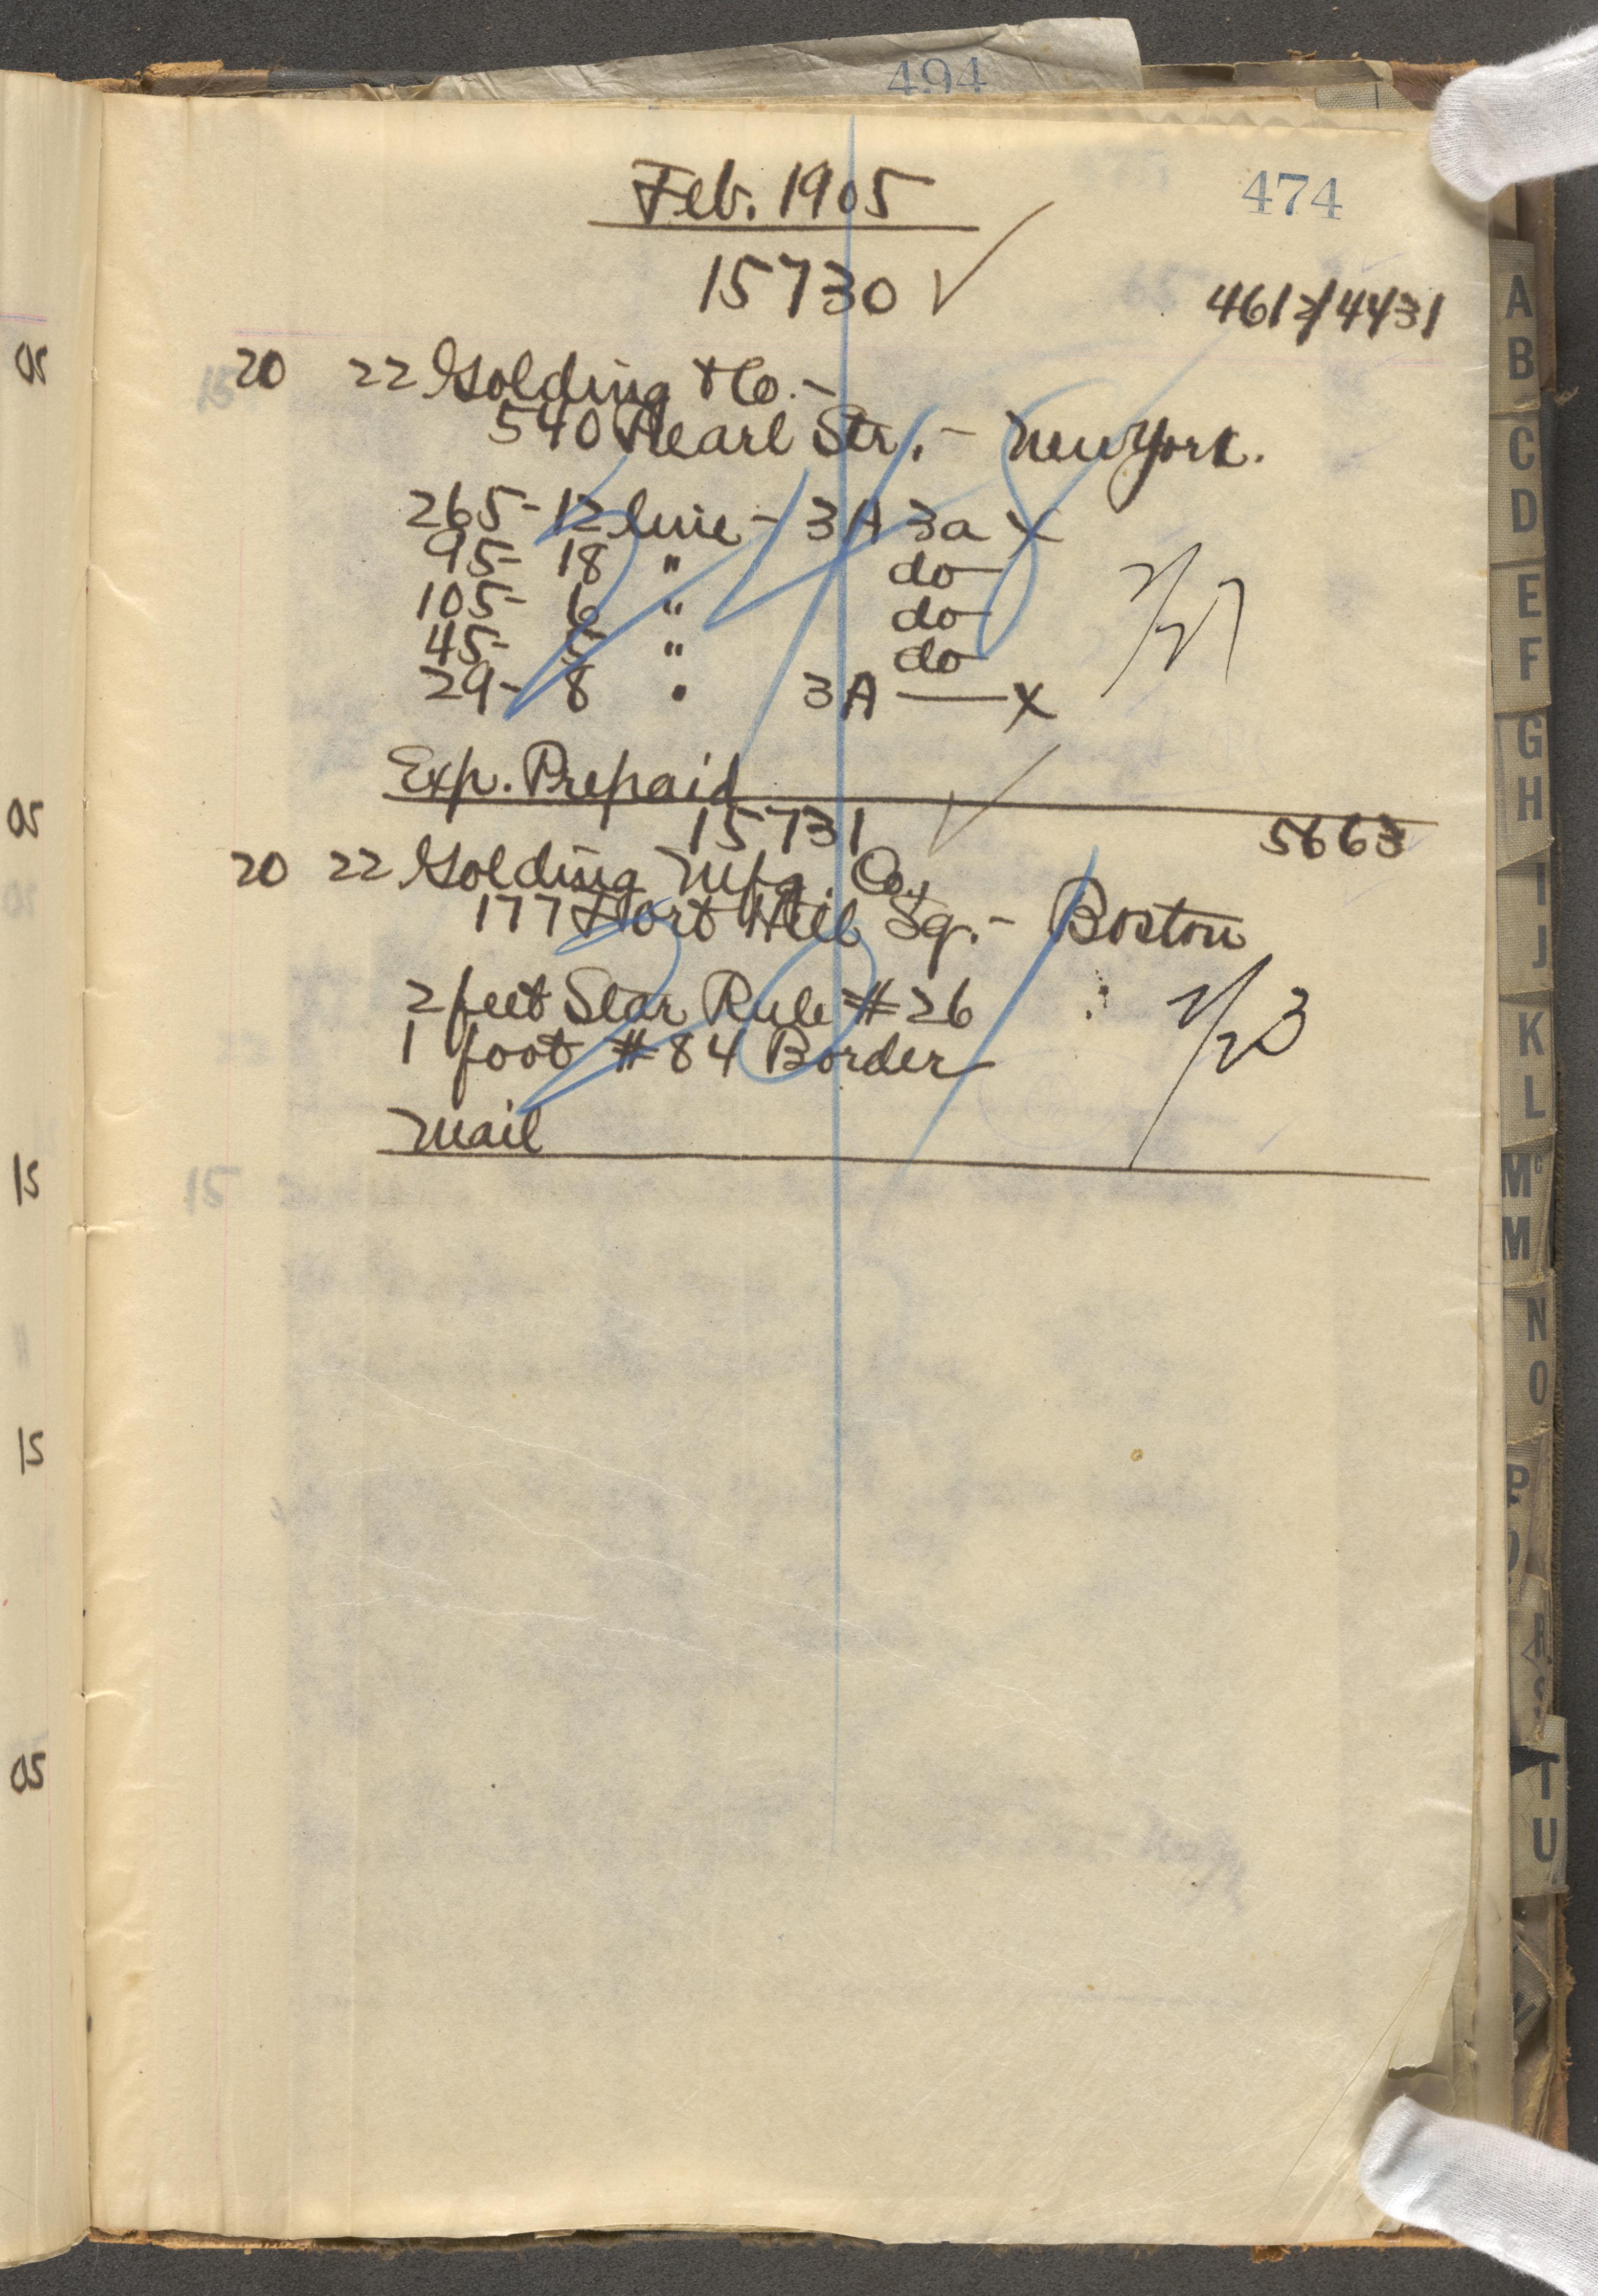 494
474
Feb. 1905
15730 ✓
4612/4431
20 22 Golding & Co. -
540 Pearl Str. - New York.
265 - 12 line - 3A 3a X
95 - 18 " do
105 - 6 " do
45 - 5 " do
29 - 8 " 3A — X
2/27
Exp. Prepaid
15731 ✓
5663
20 22 Golding Mfg. Co.,
177 Fort Hill Sq. - Boston
2 feet Star Rule #26
1 foot #84 Border
2/23
Mail
05
05
15
15
05
A
B
C
D
E
F
G
H
I
J
K
L
Mc
M
N
O
P
Q
R
S
T
U